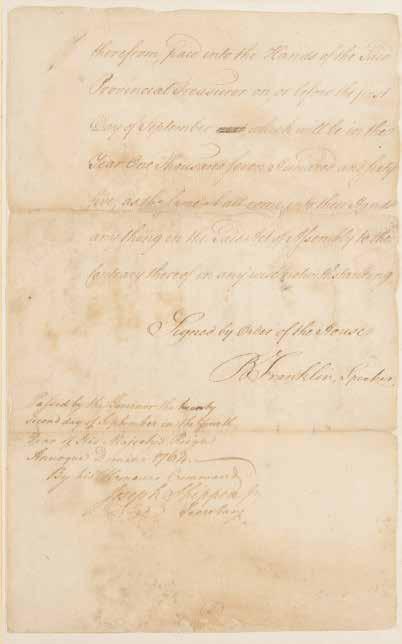 therefrom paid into the Hands of the Said
Provincial Treasurer on or before the first
Day of September which will be in the
Year One Thousand Seven Hundred and Sixty
five, as the Same shall come into their Hands
any thing in the Said Act of Assembly to the
Contrary thereof in any wise notwithstanding
Signed by Order of the House
B Franklin, Speaker.
Passed by the Governor the twenty
second day of September in the fourth
Year of His Majesty's Reign
Annoque Domini 1764.
By his Honour's Command
Joseph Shippen Jr
Secretary